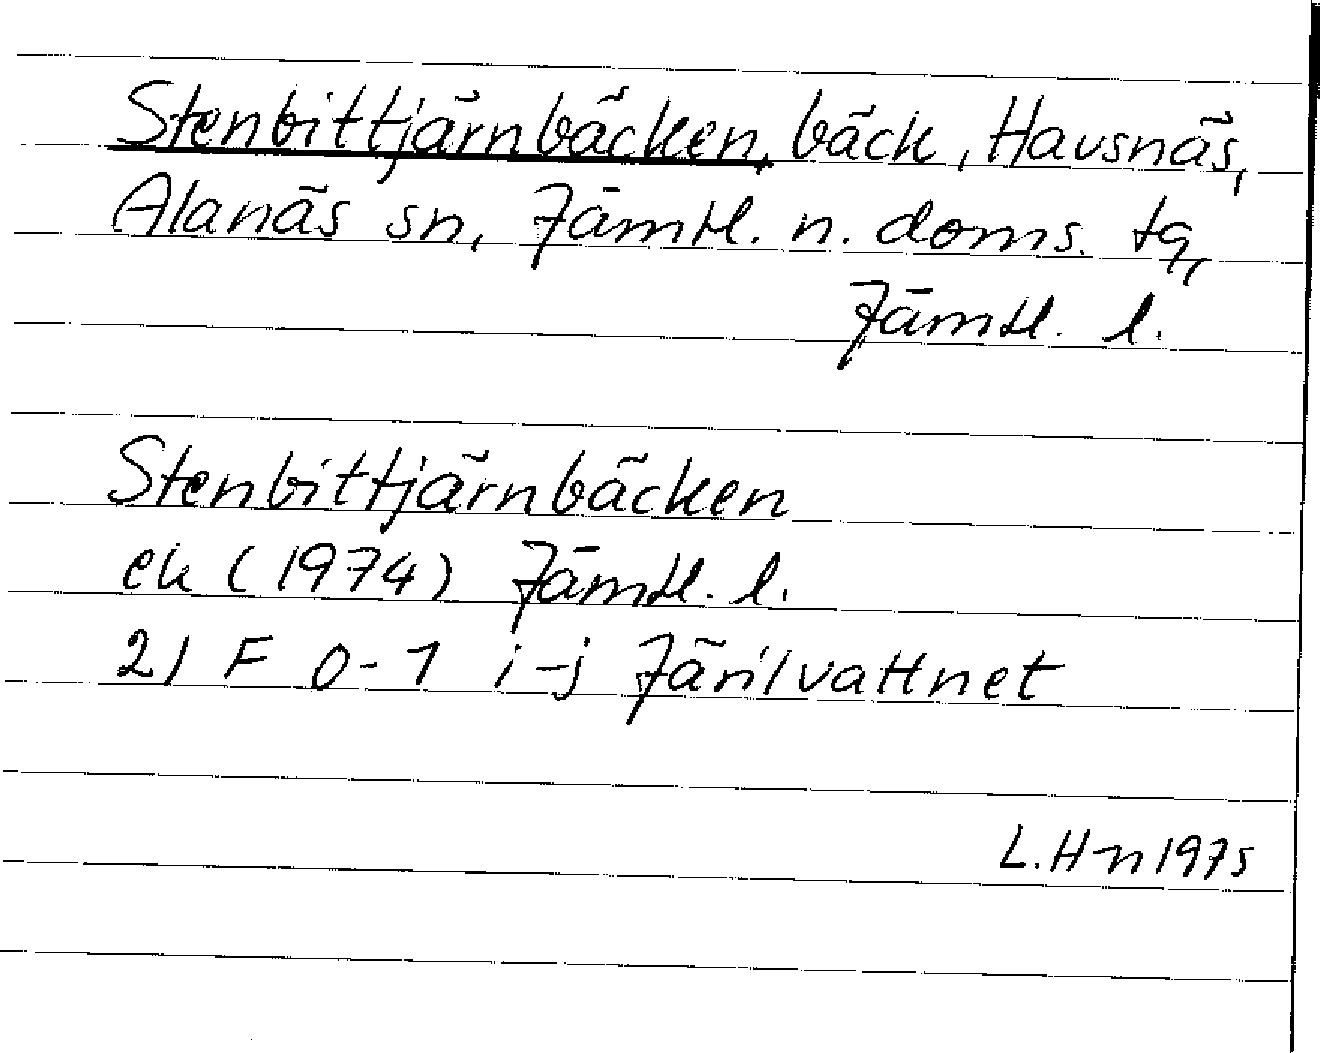 Stenbittjärnbäcken, bäck, Havsnäs,
Alanäs sn, Jämtl. n. doms. tg,
Jämtl. l.
Stenbittjärnbäcken
ek (1974) Jämtl. l.
21 F 0-1 i-j Järilvattnet
L.H-n 1975